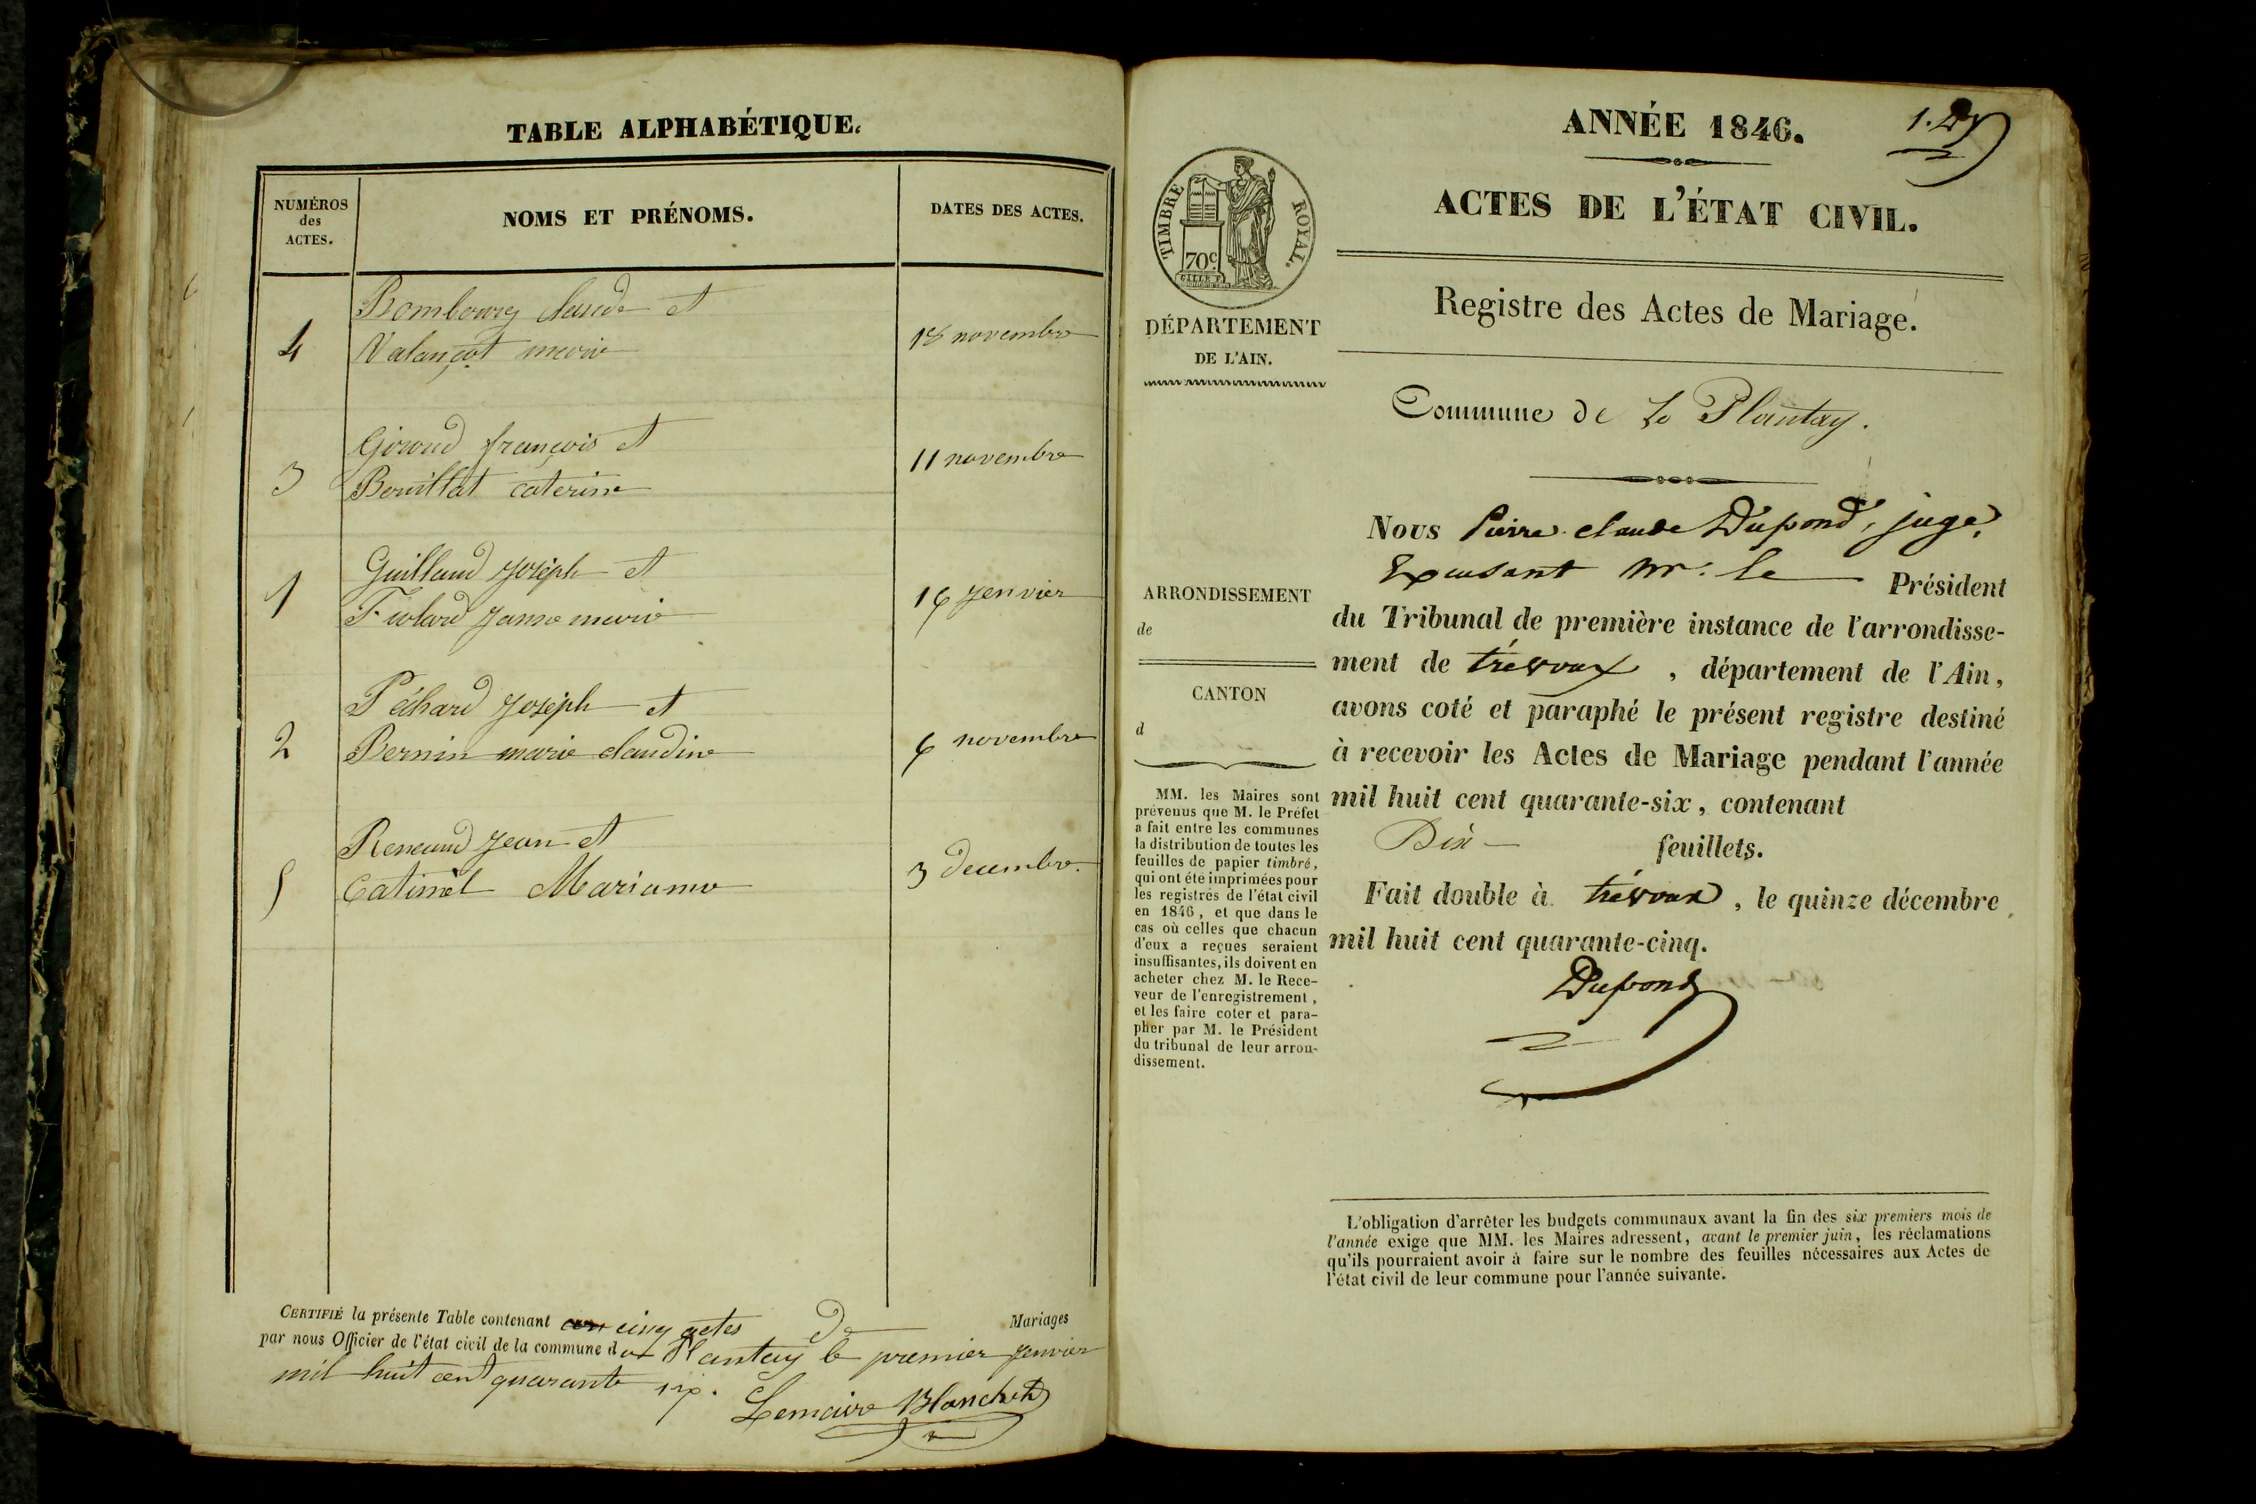 TABLE ALPHABÉTIQUE.
NUMÉROS
des
ACTES.
NOMS ET PRÉNOMS.
DATES DES ACTES.
Bombourg claude et
4 Valançot marie 18 novembre
Giroud françois et
3 Bouillat caterine 11 novembre
Guilland joseph et
1 janne marie 16 janvier
Péchard joseph et
2 Bernin marie claudine 6 novembre
Renaud jean et
5 Catimel Marianne 3 decembre.
CERTIFIÉ la présente Table contenant cinq actes de Mariages
par nous Officier de l'état civil de la commune du Plantay le premier janvier
mil huit cent quarante six.
Lemaire Blanchet
ANNÉE 1846.
ACTES DE L'ÉTAT CIVIL.
TIMBRE ROYAL.
70c
DÉPARTEMENT
DE L'AIN.
Registre des Actes de Mariage.
Commune de Le Plantay.
ARRONDISSEMENT
de
CANTON
d
MM. les Maires sont
prévenus que M. le Préfet
a fait entre les communes
la distribution de toutes les
feuilles de papier timbré,
qui ont été imprimées pour
les registres de l'état civil
en 1846, et que dans le
cas où celles que chacun
d'eux a reçues seraient
insuffisantes, ils doivent en
acheter chez M. le Rece-
veur de l'enregistrement,
et les faire coter et para-
pher par M. le Président
du tribunal de leur arron-
dissement.
Nous Pierre claude Dupond, juge,
Excusant Mr. le Président
du Tribunal de première instance de l'arrondisse-
ment de trévoux, département de l'Ain,
avons coté et paraphé le présent registre destiné
à recevoir les Actes de Mariage pendant l'année
mil huit cent quarante-six, contenant
Dix feuillets.
Fait double à trévoux, le quinze décembre
mil huit cent quarante-cinq.
Dupond
L'obligation d'arrêter les budgets communaux avant la fin des six premiers mois de
l'année exige que MM. les Maires adressent, avant le premier juin, les réclamations
qu'ils pourraient avoir à faire sur le nombre des feuilles nécessaires aux Actes de
l'état civil de leur commune pour l'année suivante.